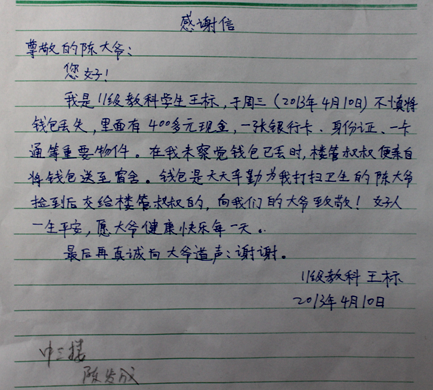 感谢信
尊敬的陈大爷：
您好！
我是11级教科学生王标，于周三（2013年4月10日）不慎将
钱包丢失，里面有400多元现金，一张银行卡、身份证、一卡
通等重要物件。在我未察觉钱包已丢时，楼管叔叔便亲自
将钱包送至宿舍。钱包是天天辛勤为我打扫卫生的陈大爷
捡到后交给楼管叔叔的，向我们的大爷致敬！好人
一生平安，愿大爷健康快乐每一天。
最后再真诚向大爷道声：谢谢。
11级教科 王标
2013年4月10日